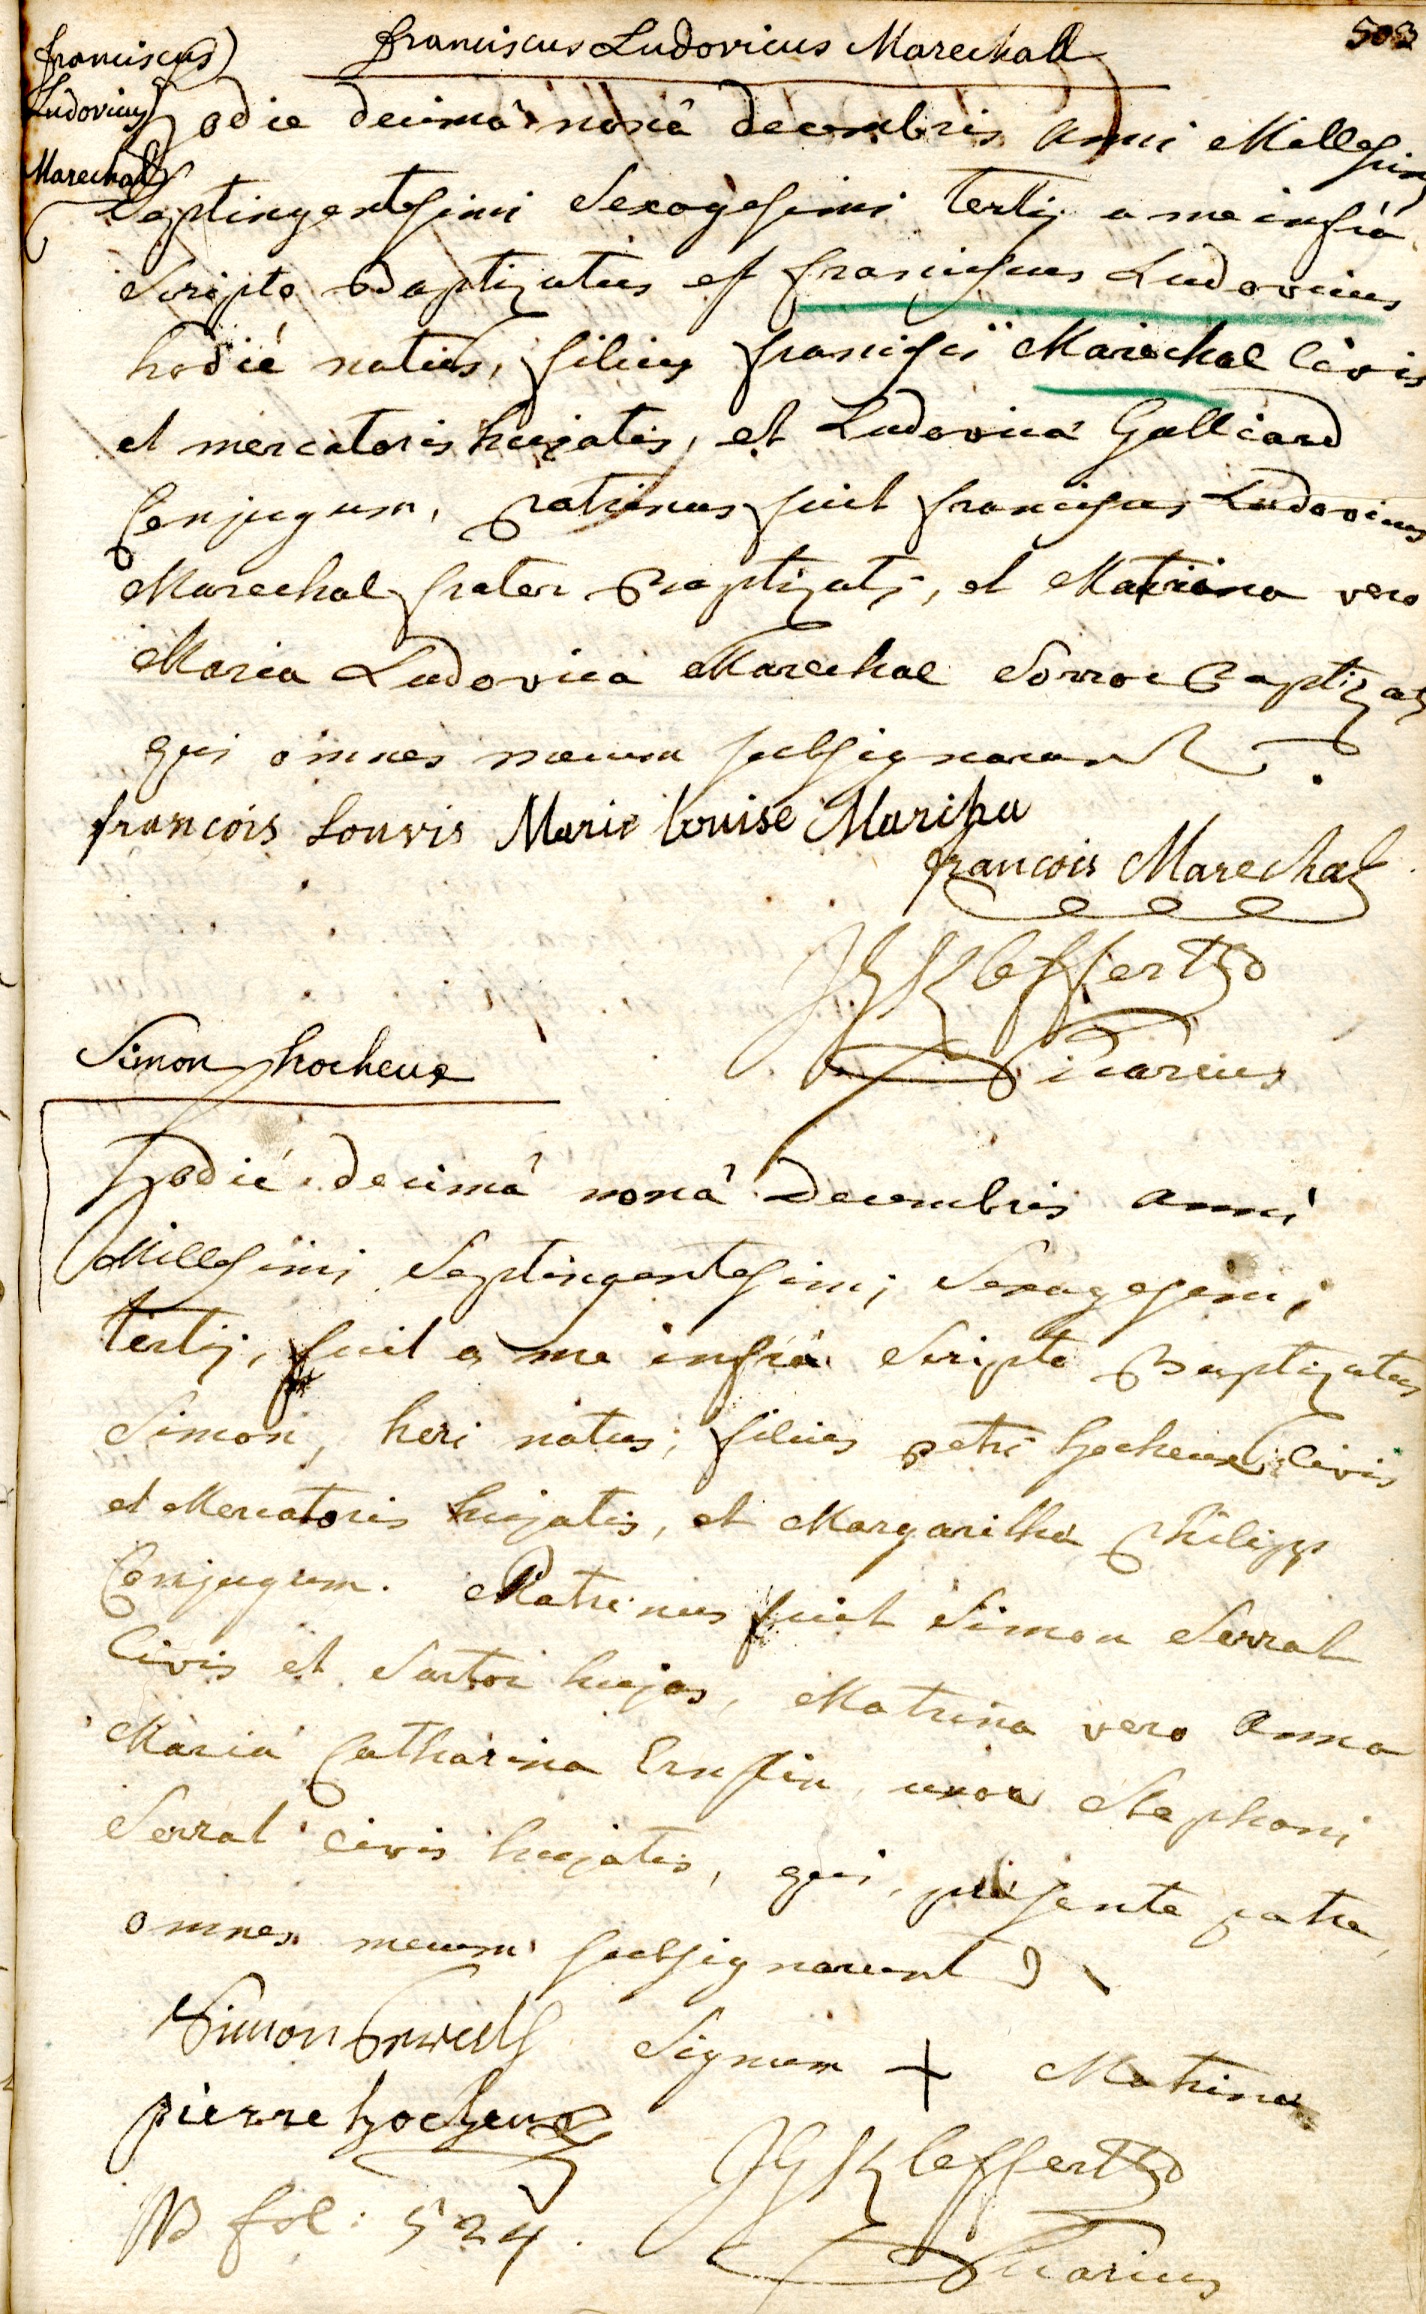 503
franciscus Ludovicus Marechall
franciscus
Ludovicus
Marechal
Hodie decimâ nonâ decembris anni Millesimi
Septingentesimi Sexagesimi tertij a me infrà
Scripto Baptizatus est franciscus Ludovicus
hodié natus, filius francisci Marechal Civis
et mercatoris hujatis, et Ludovica Galliard
Conjugum, patrinus fuit franciscus Ludovicus
Marechal frater Baptizati, et Matrina vero
Maria Ludovica Marechal Sorror Baptizati
qui omnes mecum subsignarunt
françois Louvis Marie louise Mariha
francois Marechal
JGKleffertz
Vicarius
Simon hocheux
Hodié decimâ nonâ Decembris anni
Millesimi Septingentesimi Sexagesimi
tertij, fuit a me infrà Scripto Baptizatus
Simon, heri natus, filius petri hocheux Civis
et Mercatoris hujatis, et Margaritha Philipp
Conjugum. Patrinus fuit Simon Serral
Civis et Sartor hujas, Matrina vero Anna
Maria Catharina uxor Stephani
Serral civis hujatis, qui, presente patre,
omnes mecum subsignarunt
Simon
Signum + Matrina
pierre hocheux
JGKleffertz
Vicarius
NB fol: 524.